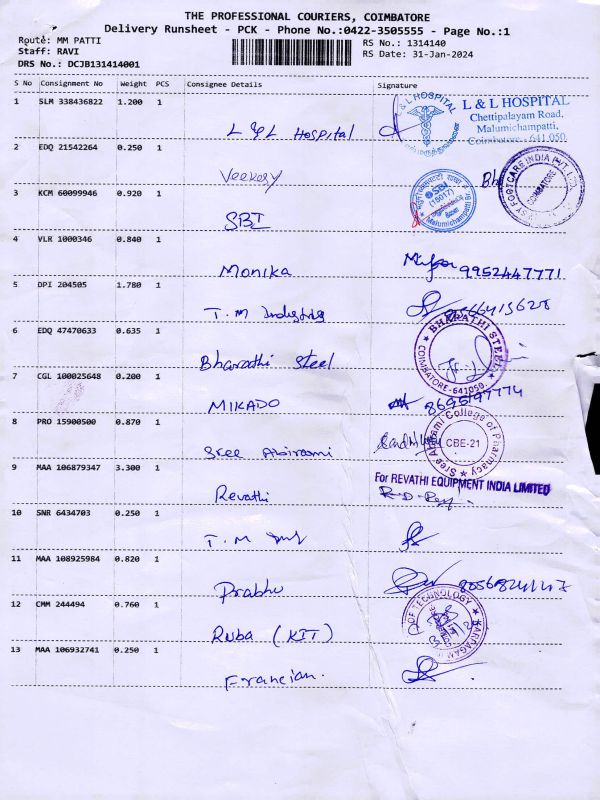 THE PROFESSIONAL COURIERS, COIMBATORE
Delivery Runsheet - PCK - Phone No.:0422-3505555 - Page No.:1
Route: MM PATTI
RS No.: 1314140
Staff: RAVI
RS Date: 31-Jan-2024
DRS No.: DCJB131414001
S No Consignment No Weight PCS Consignee Details Signature
1 SLM 338436822 1.200 1
L & L Hospital
L & L HOSPITAL
L & L HOSPITAL
Chettipalayam Road,
Malumichampatti,
Coimbatore - 641 050.
2 EDQ 21542264 0.250 1
Veekesy
FOOTCARE INDIA PVT. LTD.
COIMBATORE
3 KCM 60099946 0.920 1
SBI
SBI
(15017)
4 VLR 1000346 0.840 1
Monika
9952447771
5 DPI 204505 1.780 1
T.M Industries
6 EDQ 47470633 0.635 1
Bharathi Steel
BHARATHI STEEL
COIMBATORE-641050.
7 CGL 100025648 0.200 1
MIKADO
8695197774
8 PRO 15900500 0.870 1
Sree Abirami
Sree Abirami College of Pharmacy
CBE-21
9 MAA 106879347 3.300 1
Revathi
For REVATHI EQUIPMENT INDIA LIMITED
10 SNR 6434703 0.250 1
T.M
11 MAA 108925984 0.820 1
Prabhu
12 CMM 244494 0.760 1
Ruba (KIT)
OF TECHNOLOGY
KARPAGAM
13 MAA 106932741 0.250 1
Francian.